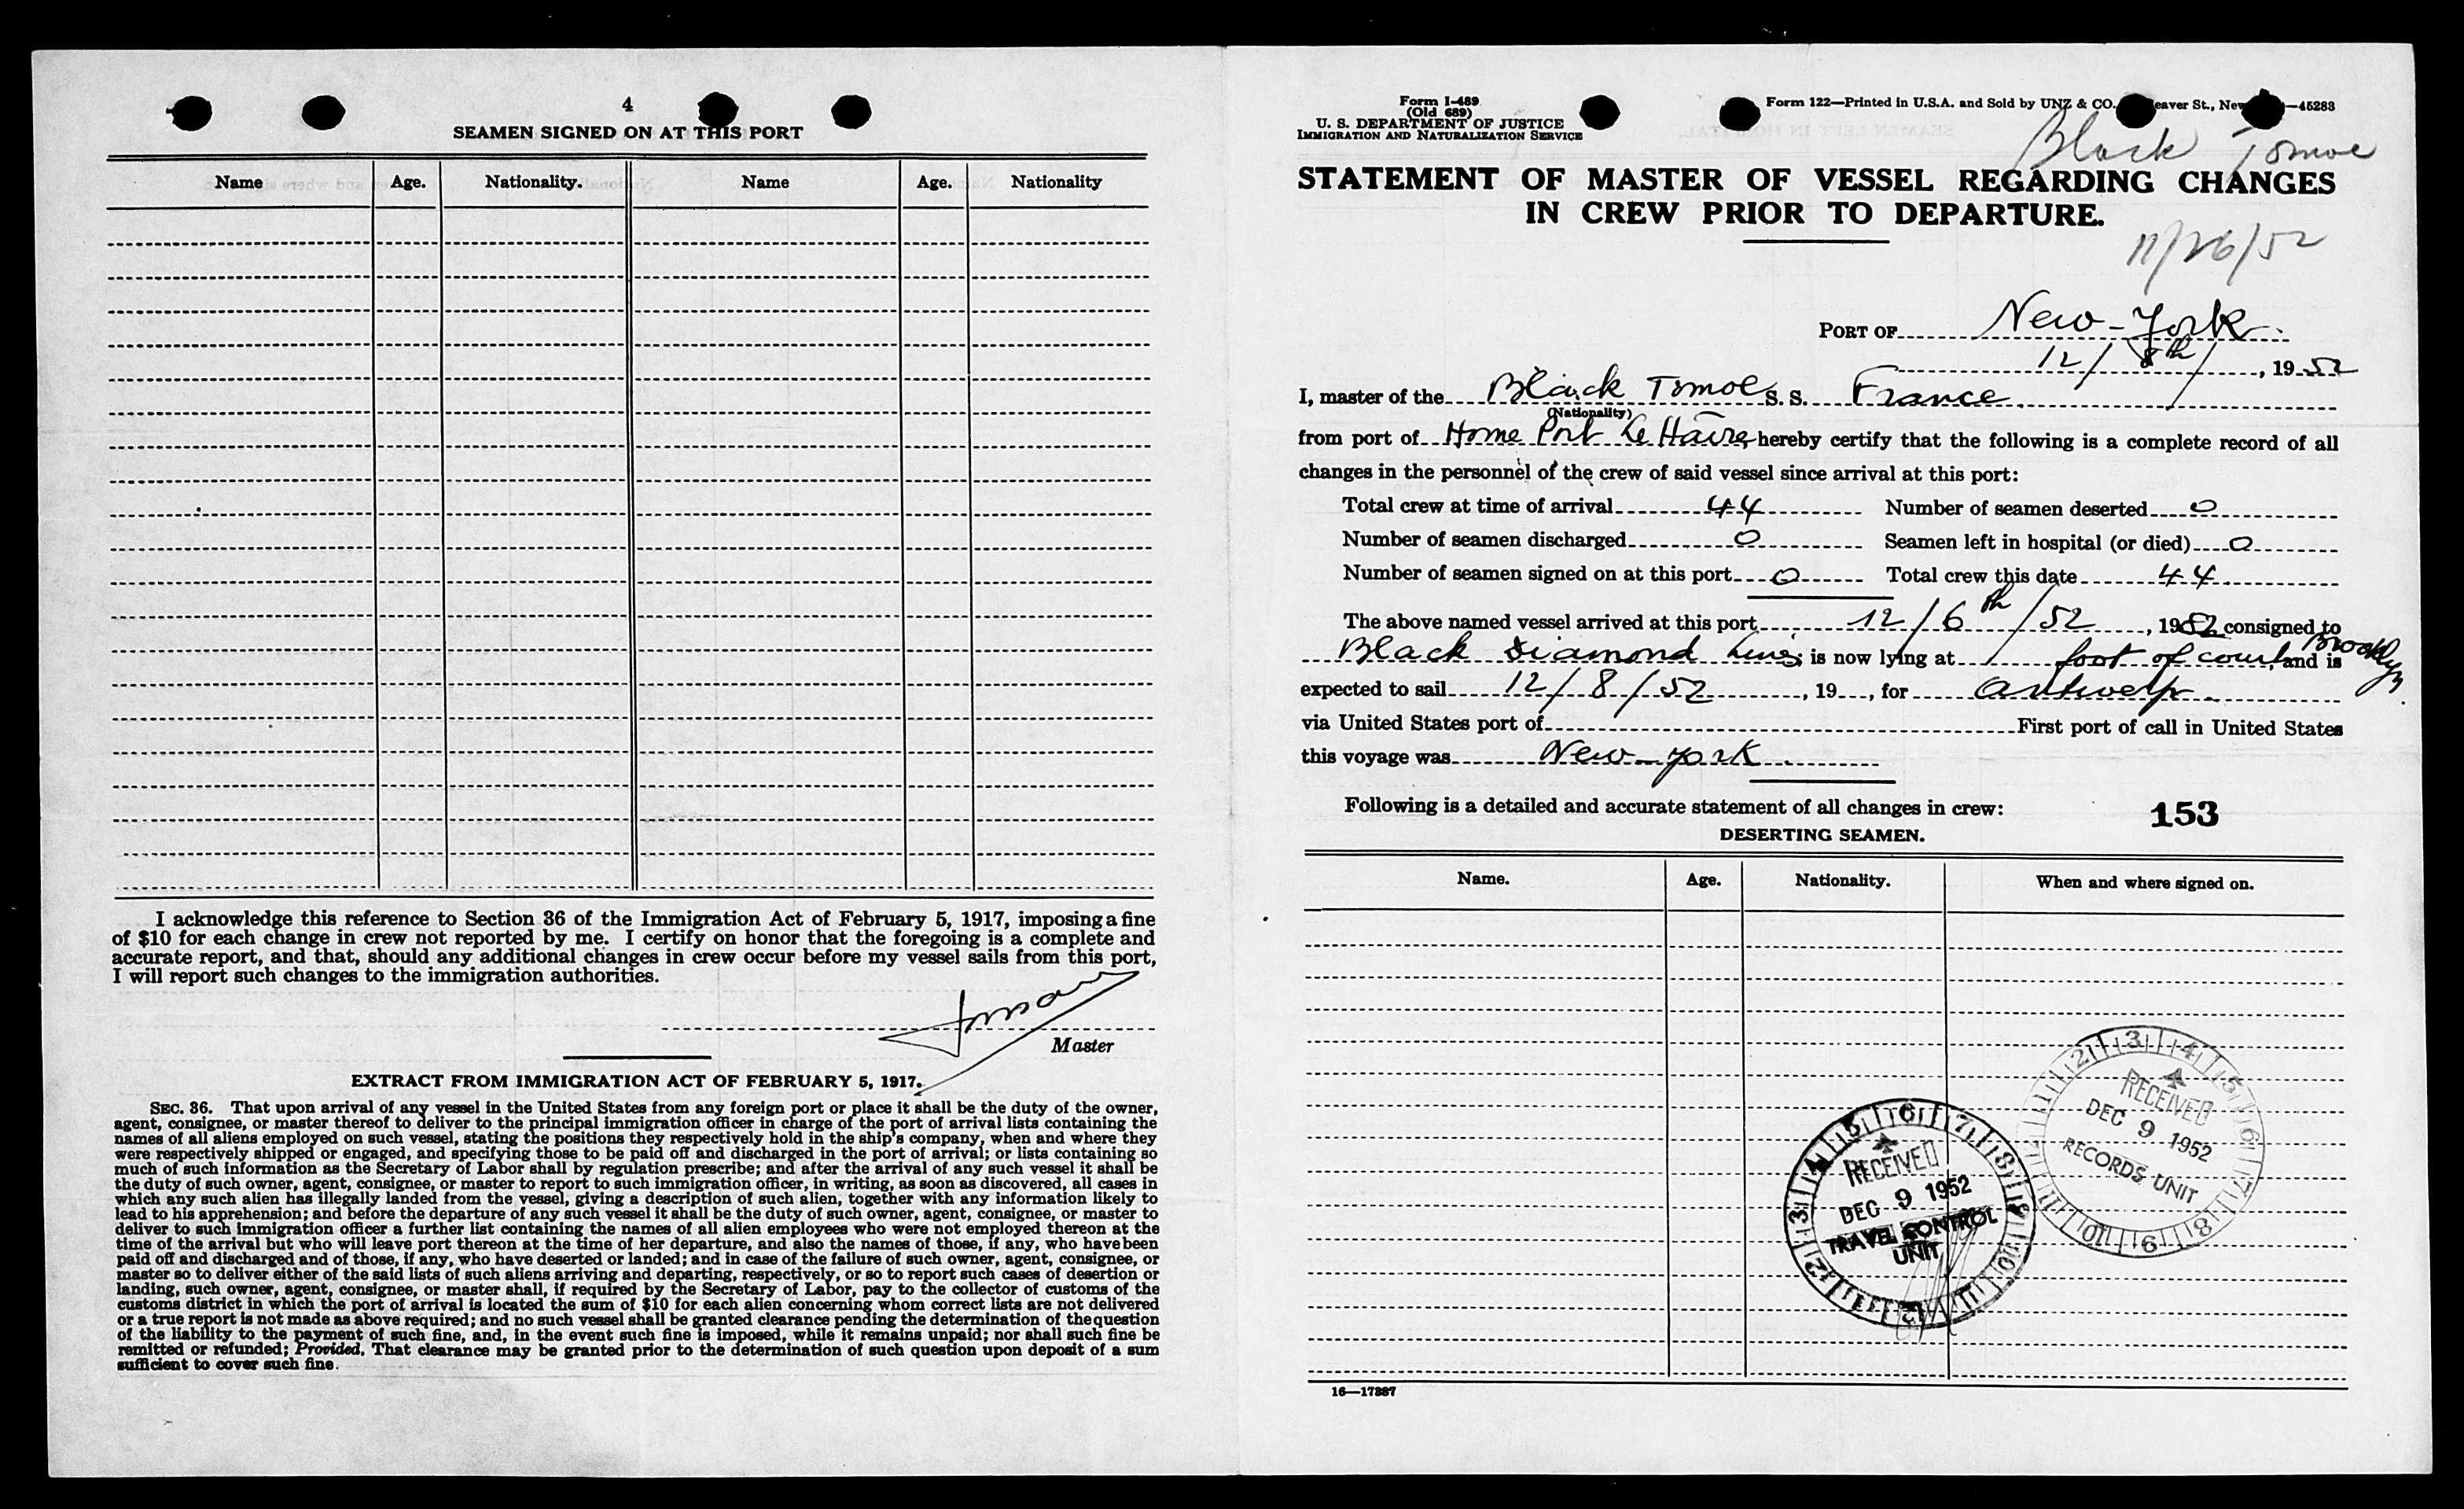 4
SEAMEN SIGNED ON AT THIS PORT
Name Age. Nationality. Name Age. Nationality
I acknowledge this reference to Section 36 of the Immigration Act of February 5, 1917, imposing a fine
of $10 for each change in crew not reported by me. I certify on honor that the foregoing is a complete and
accurate report, and that, should any additional changes in crew occur before my vessel sails from this port,
I will report such changes to the immigration authorities.
Master
EXTRACT FROM IMMIGRATION ACT OF FEBRUARY 5, 1917.
SEC. 36. That upon arrival of any vessel in the United States from any foreign port or place it shall be the duty of the owner,
agent, consignee, or master thereof to deliver to the principal immigration officer in charge of the port of arrival lists containing the
names of all aliens employed on such vessel, stating the positions they respectively hold in the ship's company, when and where they
were respectively shipped or engaged, and specifying those to be paid off and discharged in the port of arrival; or lists containing so
much of such information as the Secretary of Labor shall by regulation prescribe; and after the arrival of any such vessel it shall be
the duty of such owner, agent, consignee, or master to report to such immigration officer, in writing, as soon as discovered, all cases in
which any such alien has illegally landed from the vessel, giving a description of such alien, together with any information likely to
lead to his apprehension; and before the departure of any such vessel it shall be the duty of such owner, agent, consignee, or master to
deliver to such immigration officer a further list containing the names of all alien employees who were not employed thereon at the
time of the arrival but who will leave port thereon at the time of her departure, and also the names of those, if any, who have been
paid off and discharged and of those, if any, who have deserted or landed; and in case of the failure of such owner, agent, consignee, or
master so to deliver either of the said lists of such aliens arriving and departing, respectively, or so to report such cases of desertion or
landing, such owner, agent, consignee, or master shall, if required by the Secretary of Labor, pay to the collector of customs of the
customs district in which the port of arrival is located the sum of $10 for each alien concerning whom correct lists are not delivered
or a true report is not made as above required; and no such vessel shall be granted clearance pending the determination of the question
of the liability to the payment of such fine, and, in the event such fine is imposed, while it remains unpaid; nor shall such fine be
remitted or refunded; Provided, That clearance may be granted prior to the determination of such question upon deposit of a sum
sufficient to cover such fine.
Form I-489
(Old 689)
U. S. DEPARTMENT OF JUSTICE
IMMIGRATION AND NATURALIZATION SERVICE
Form 122—Printed in U.S.A. and Sold by UNZ & CO. eaver St., New —45283
Black Tomoe
STATEMENT OF MASTER OF VESSEL REGARDING CHANGES
IN CREW PRIOR TO DEPARTURE.
11/26/52
PORT OF New-York
12/ 8th/, 1952
I, master of the Black Tomoe S. S. France
(Nationality)
from port of Home Port Le Havre, hereby certify that the following is a complete record of all
changes in the personnel of the crew of said vessel since arrival at this port:
Total crew at time of arrival 44 Number of seamen deserted 0
Number of seamen discharged 0 Seamen left in hospital (or died) 0
Number of seamen signed on at this port 0 Total crew this date 44
The above named vessel arrived at this port 12/6th/52, 1952 consigned to
Black Diamond Line; is now lying at foot of court, Brooklyn and is
expected to sail 12/8/52, 19 , for Antwerp
via United States port of First port of call in United States
this voyage was New-york
Following is a detailed and accurate statement of all changes in crew:
153
DESERTING SEAMEN.
Name. Age. Nationality. When and where signed on.
RECEIVED
DEC 9 1952
RECORDS UNIT
RECEIVED
DEC 9 1952
TRAVEL CONTROL
UNIT
16—17887